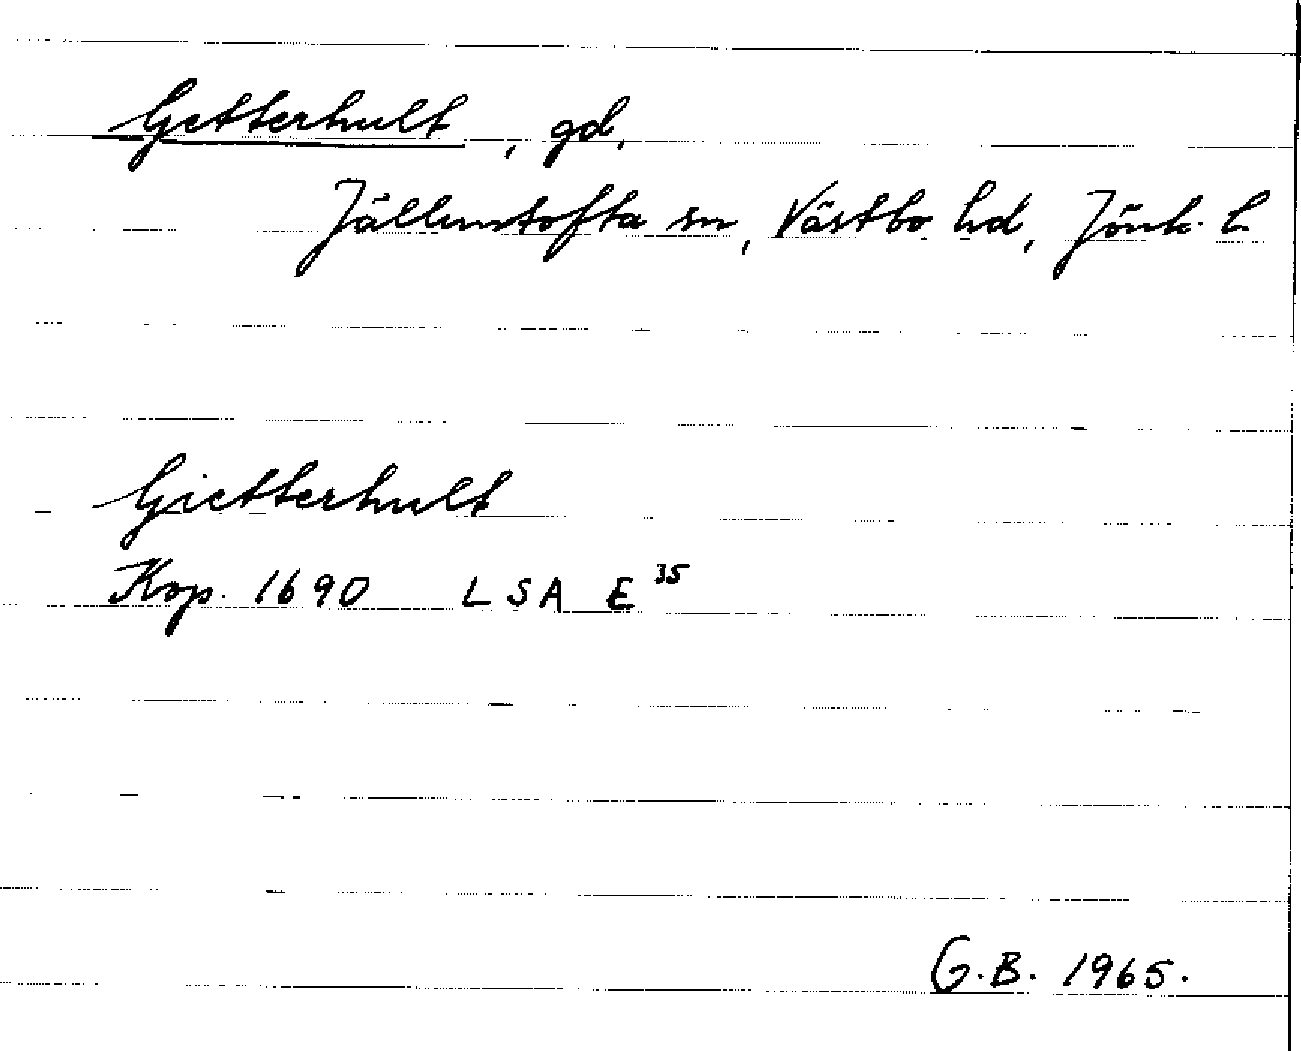 Getterhult, gd,
Jälluntofta sn, Västbo hd, Jönk. L
Gietterhult
Kop. 1690 LSA E 35
G.B. 1965.